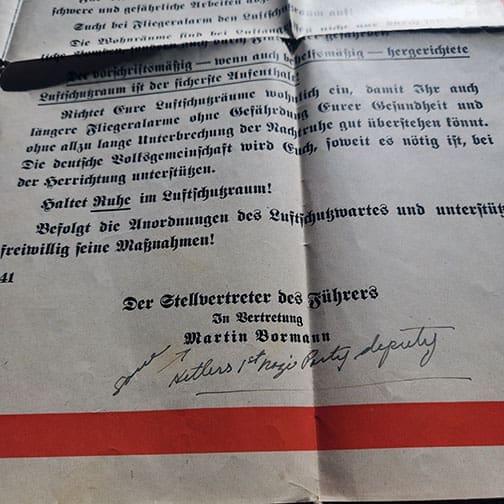 schwere und gefährliche Arbeiten
Sucht bei Fliegeralarm den Luftschutzraum auf!
Die Wohnräume sind bei
Der vorschriftsmäßig — wenn auch behelfsmäßig — hergerichtete
Luftschutzraum ist der sicherste Aufenthalt!
Richtet Eure Luftschutzräume wohnlich ein, damit Ihr auch
längere Fliegeralarme ohne Gefährdung Eurer Gesundheit und
ohne allzu lange Unterbrechung der Nachtruhe gut überstehen könnt.
Die deutsche Volksgemeinschaft wird Euch, soweit es nötig ist, bei
der Herrichtung unterstützen.
Haltet Ruhe im Luftschutzraum!
Befolgt die Anordnungen des Luftschutzwartes und unterstütz
freiwillig seine Maßnahmen!
41
Der Stellvertreter des Führers
In Vertretung
Martin Bormann
Hitlers 1st Nazi Party deputy